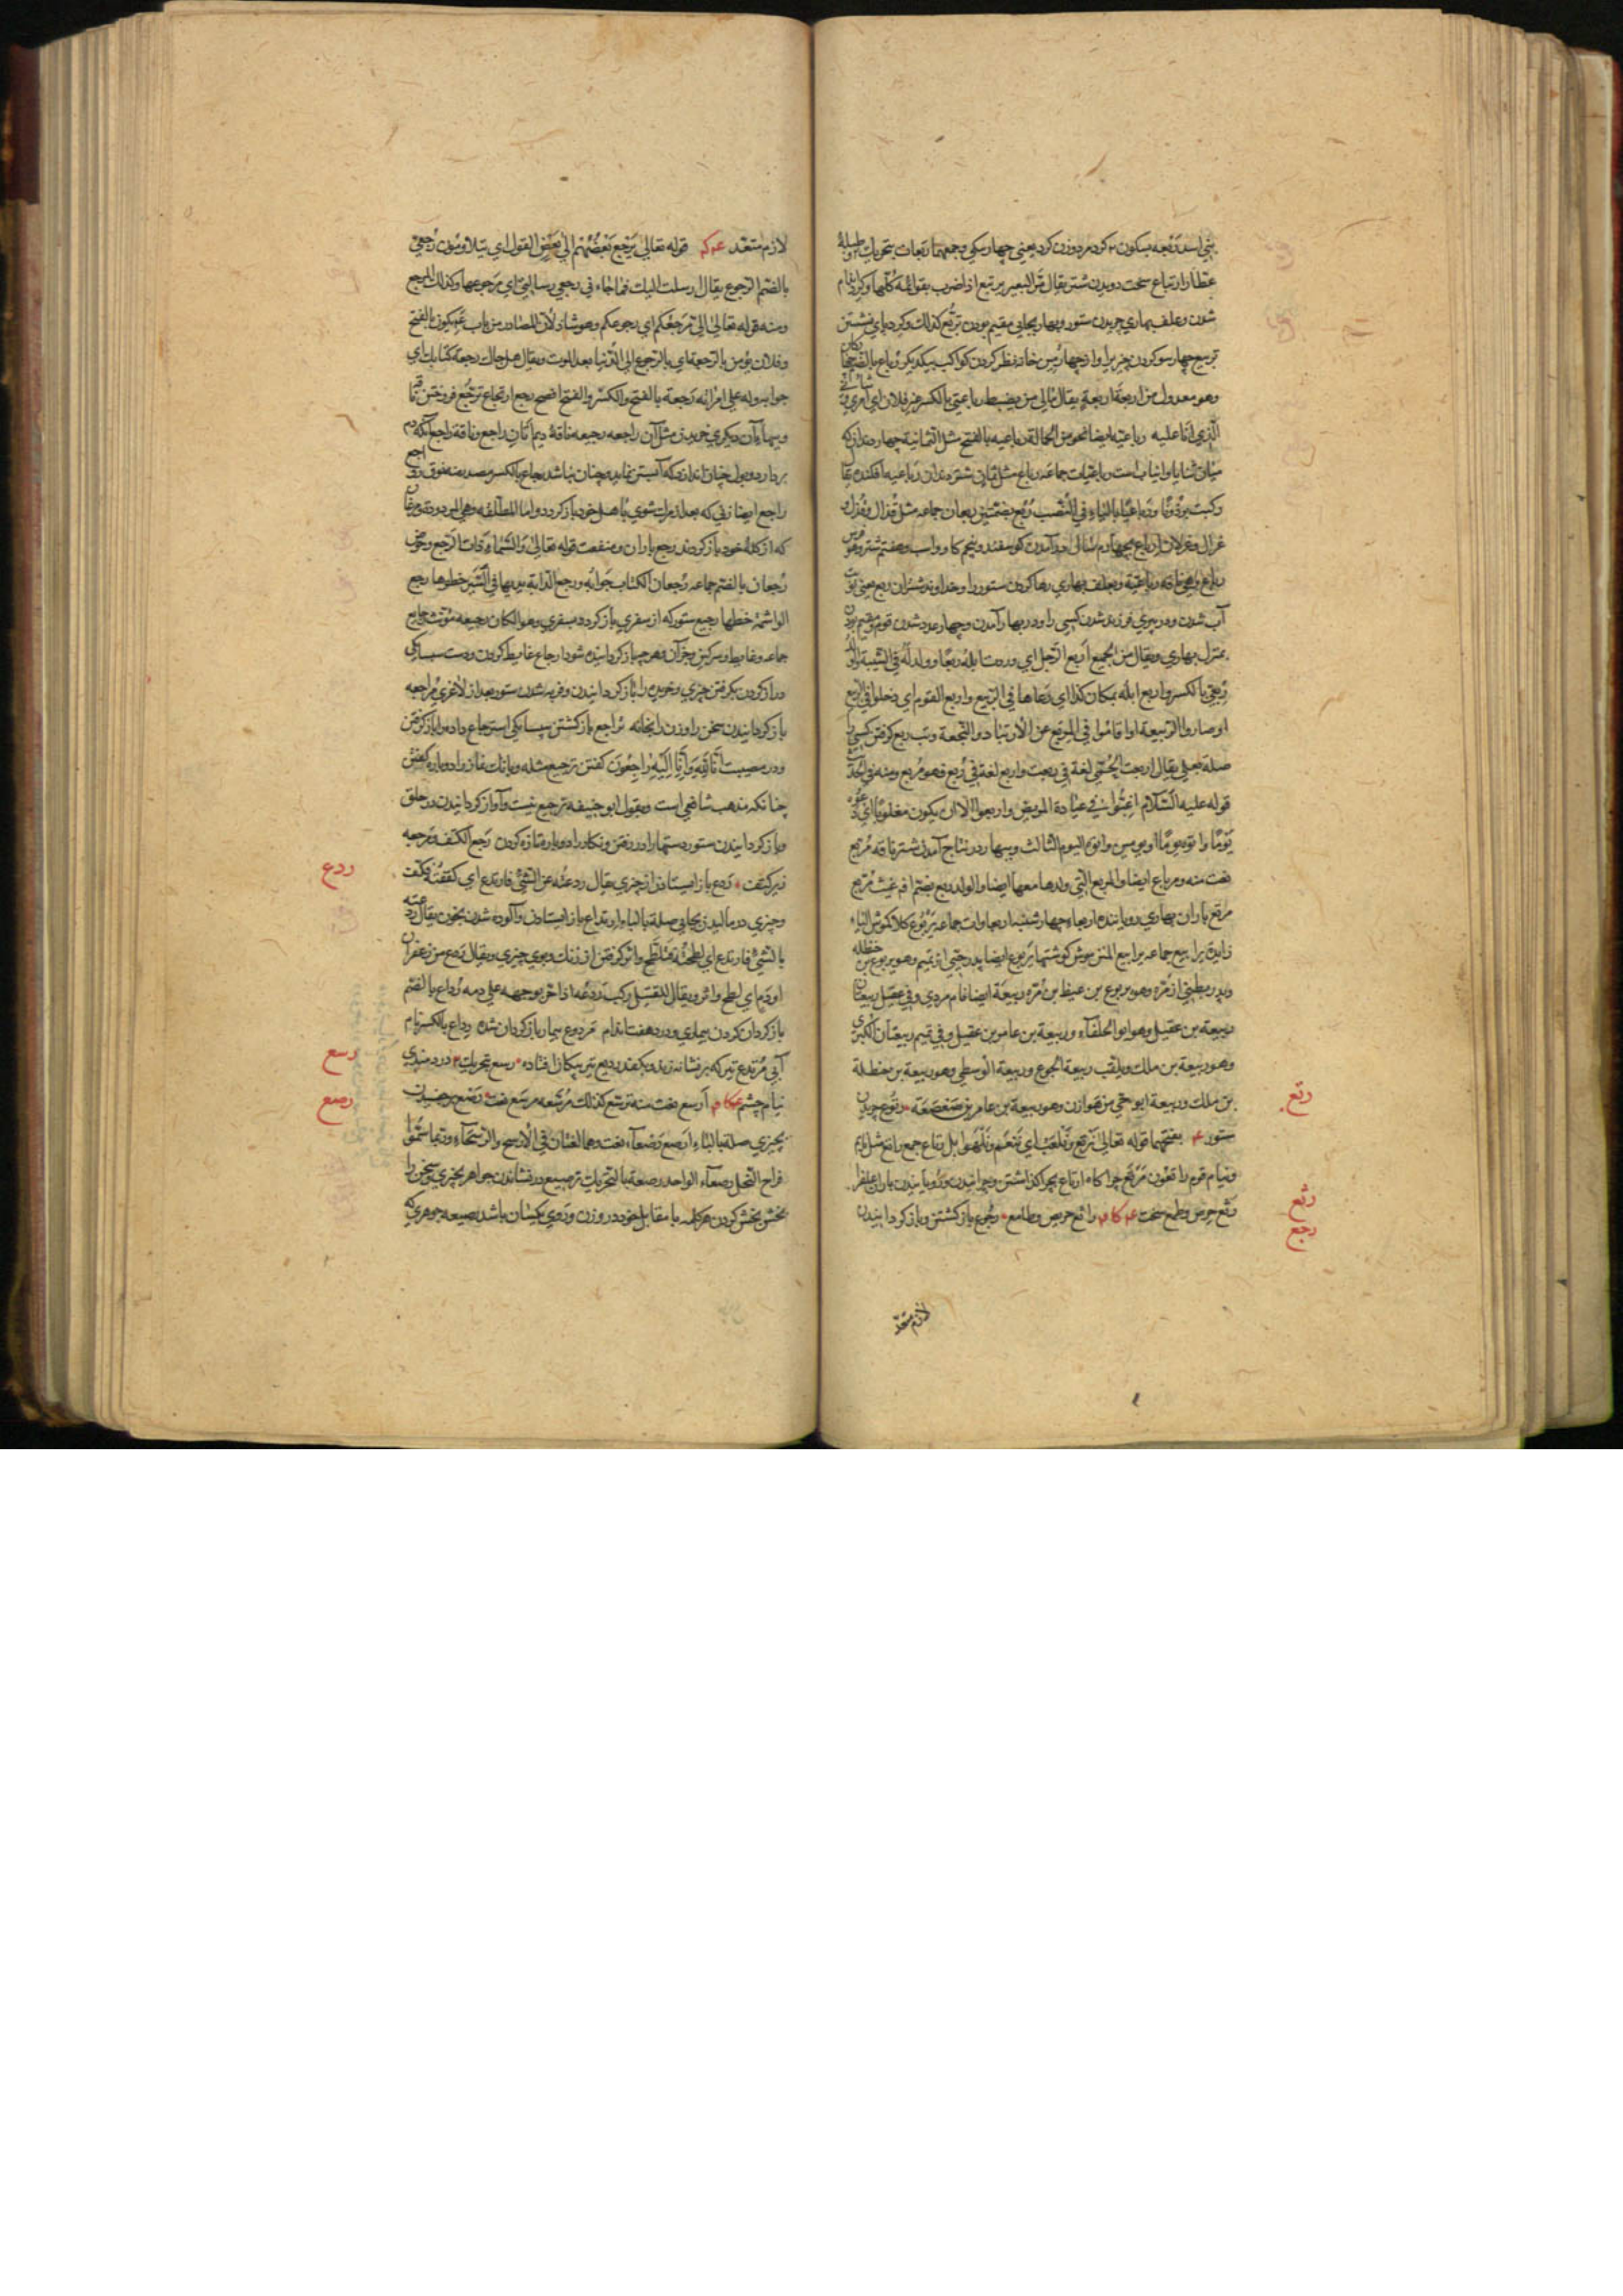 بني اسد ربعه بسكون ب كرد مرد و زن كرد يعني چهار سكي وجمعهما ربعات بتحريك ب وطبلهٔ
عطار ارتباع سخت دويدن شتر يقال مر البعير يرتبع اذا ضرب بقوائمه كلها وكرد اندام
شدن وعلف بهاري چريدن ستور وبهار بجايي مقيم بودن تربع كذلك وكرد پاي نشستن
تربيع چهار سو كردن چيزيرا واز چهارمين خانه نظر كردن كواكب بيكديكر رباع بالضم چهار كان
وهو معدول من اربعة اربعة يقال مالي من يضبط رباعتي بالكسر غير فلان اي امري وشاني
الذي انا عليه رباعيه ايضا نحو من الحمالة رباعيه بالفتح مثل الثمانية چهار دندان كه
ميان ثنايا وانياب است رباعيات جماعه رباع مثل ثمان شتر دندان رباعيه افكنده
ركبت برذونا رباعيا بالياء في النصب ربع بضمتين ربعان جماعه مثل قذال وقذل
غزال وغزلان ارباع بچهارم سالي در آمدن كوسفند وپنجم كاو واسپ وهفتم شتر وهو فرس
رباع وهي ناقه رباعية وبعلف بهاري رها كردن ستور را وخداوند شتران ربع يعني نوبت
آب شدن ودر پيري فرزند شدن كسي را ودر بهار آمدن وچهار عدد شدن قوم ومقيم بودن
بمنزل بهاري ويقال من الجميع اربع الرجل اي وردت ابله ربعا وولد له في الشبيبة والولد
ربعي بالكسر واربع ابله بمكان كذا اي رعاها في الربيع واربع القوم اي دخلوا في الربع
او صاروا اربعة او اقاموا في المربع عن الارتياد والنجعة وتب ربع كرفتن كسيرا
صلة بعلي يقال اربعت الحمي لغة في ربعت واربع لغة في ربع فهو مربع ومنه في الحديث
قوله عليه السلام اغبوا في عيادة المريض واربعوا الا ان يكون مغلوبا اي دعوه
يوما او يومين واتوه اليوم الثالث وببهار در نتاج آمدن شتر ناقه مربع
نعت منه ومرباع ايضا والمربع التي ولدها معها ايضا والولد ربع بضم اف غيث مربع
مربع باران بهاري روياننده اربعاء چهارشنبه اربعاوات جماعه يربوع كلاكموش الياء
زايدة يرابيع جماعه يرابيع المتن كوشتهاء يربوع ايضا پدر حيي از تميم وهو يربوع بن حنظله
وپدر بطني از مره وهو يربوع بن غيظ بن مره ربيعة ايضا نام مردي وفي عقيل ربيعتان
ربيعة بن عقيل وهو ابو الخلفاء وربيعة بن عامر بن عقيل وفي تميم ربيعتان الكبري
وهو ربيعة بن ملك ويلقب ربيعة الجوع وربيعة الوسطي وهو ربيعة بن حنظلة
بن ملك وربيعة ابو حي من هوازن وهو ربيعة بن عامر بن صعصعة رتوع چريدن
ستور بفتحهما قوله تعالي نرتع ونلعب اي ننعم ونلهوا ابل رتاع جمع راتع مثل نايم
ونيام قوم راتعون مرتع چراكاه ارتاع بچرا كذاشتن وچرانيدن ورويانيدن باران علف را
رثع حرص وطمع سخت راثع حريص وطامع رجوع باز كشتن وباز كردانيدن
رتع
رثع
رجع
لازم متعد
لازم متعد قوله تعالي يرجع بعضهم الي بعض القول اي يتلاومون رجعي
بالضم الرجوع يقال ارسلت اليك فما جاءني رجعي رسالتي اي مرجوعها وكذلك المرجع
ومنه قوله تعالي الي مرجعكم اي رجوعكم وهو شاذ لان المصادر من باب يكون بالفتح
وفلان يؤمن بالرجعة اي بالرجوع الي الدنيا بعد الموت ويقال هل جاك رجعة كتابك اي
جوابه وله علي امراته رجعة بالفتح والكسر والفتح افصح رجع ارتجاع ترجع فروختن ناقه
وببهاء آن ديكري خريدن مثل آن راجعه رجيعه ناقة ديم اتان راجع وناقة راجع آنكه دم
بردارد وبول چنان اندازد كه آبستن نمايد وچنان نباشد رجاع بالكسر مصدر منه نوق رواجع
راجع ايضا زني كه بعد از مرك شوي باهل خود باز كردد واما المطلقه فهي المردودة مرغان
كه از كله خود باز كردند رجع باران ومنفعت قوله تعالي والسماء ذات الرجع وحوض
رجعان بالضم جماعه رجعان الكتاب جوابه ورجع الدابة يديها في السير خطوها رجع
الواشمة خطها رجيع ستور كه از سفري باز كردد بسفري وهو الكان رجيعه مؤنث رجايع
جماعه وغايط وسركين وجز آن وهر چه باز كردانيده شود ارجاع غايط كردن ودست سپسايكي
دراز كردن بكرفتن چيزي وخريده را باز كردانيدن وفربه شدن ستور بعد از لاغري مراجعه
باز كردانيدن سخن را وزن را بخانه تراجع باز كشتن سپسايكي استرجاع داده را باز كرفتن
ودر مصيبت انا لله وانا اليه راجعون كفتن ترجيع مثله وبانك نماز را دوباره كفتن
چنانكه مذهب شافعي است وبقول ابو حنيفه ترجيع نيست وآواز كردانيدن در حلق
وباز كردانيدن ستور دستها را در رفتن ونكار را دوباره تازه كردن رجع الكتف ومرجعه
زير كتف ردع باز ايستادن از چيزي يقال ردعته عن الشئ فارتدع اي كففته فكف
وچيزي در ماليدن بجايي صلة بالباء ارتداع باز ايستادن وآلوده شدن بخون يقال ردعته
بالشئ فارتدع اي لطخته فتلطخ واثر كرفتن از رنك وبوي چيزي ويقال ردع من زعفران
او دم اي لطخ واثر ويقال للقتيل ركب ردعه اذا خر بوجهه علي دمه رداع بالضم
باز كردان كردن بيماري ودرد هفت اندام مردوع بيمار باز كردان شده رداع بالكسر نام
آبي مرتدع تير كه بر نشانه زند وبكفد ردیع تير پيكان افتاده رسع بتحريك دردمندي
نيام چشم ارسع نعت منه ترسع كذلك مرسعه مرسع نعت رصع برچفسيدن
بچيزي صلة بالباء ارصع رصعاء نعت وهما لغتان في الارسح والرسحاء وربما سموا
فراخ النحل رصعاء الواحد رصعة بالتحريك ترصيع در نشاندن جواهر بچيزي وسخن را
بخش بخش كردن هر كلمه با مقابل خود در وزن وروي يكسان باشد رصيعه جوهري كه
ردع
رسع
رصع